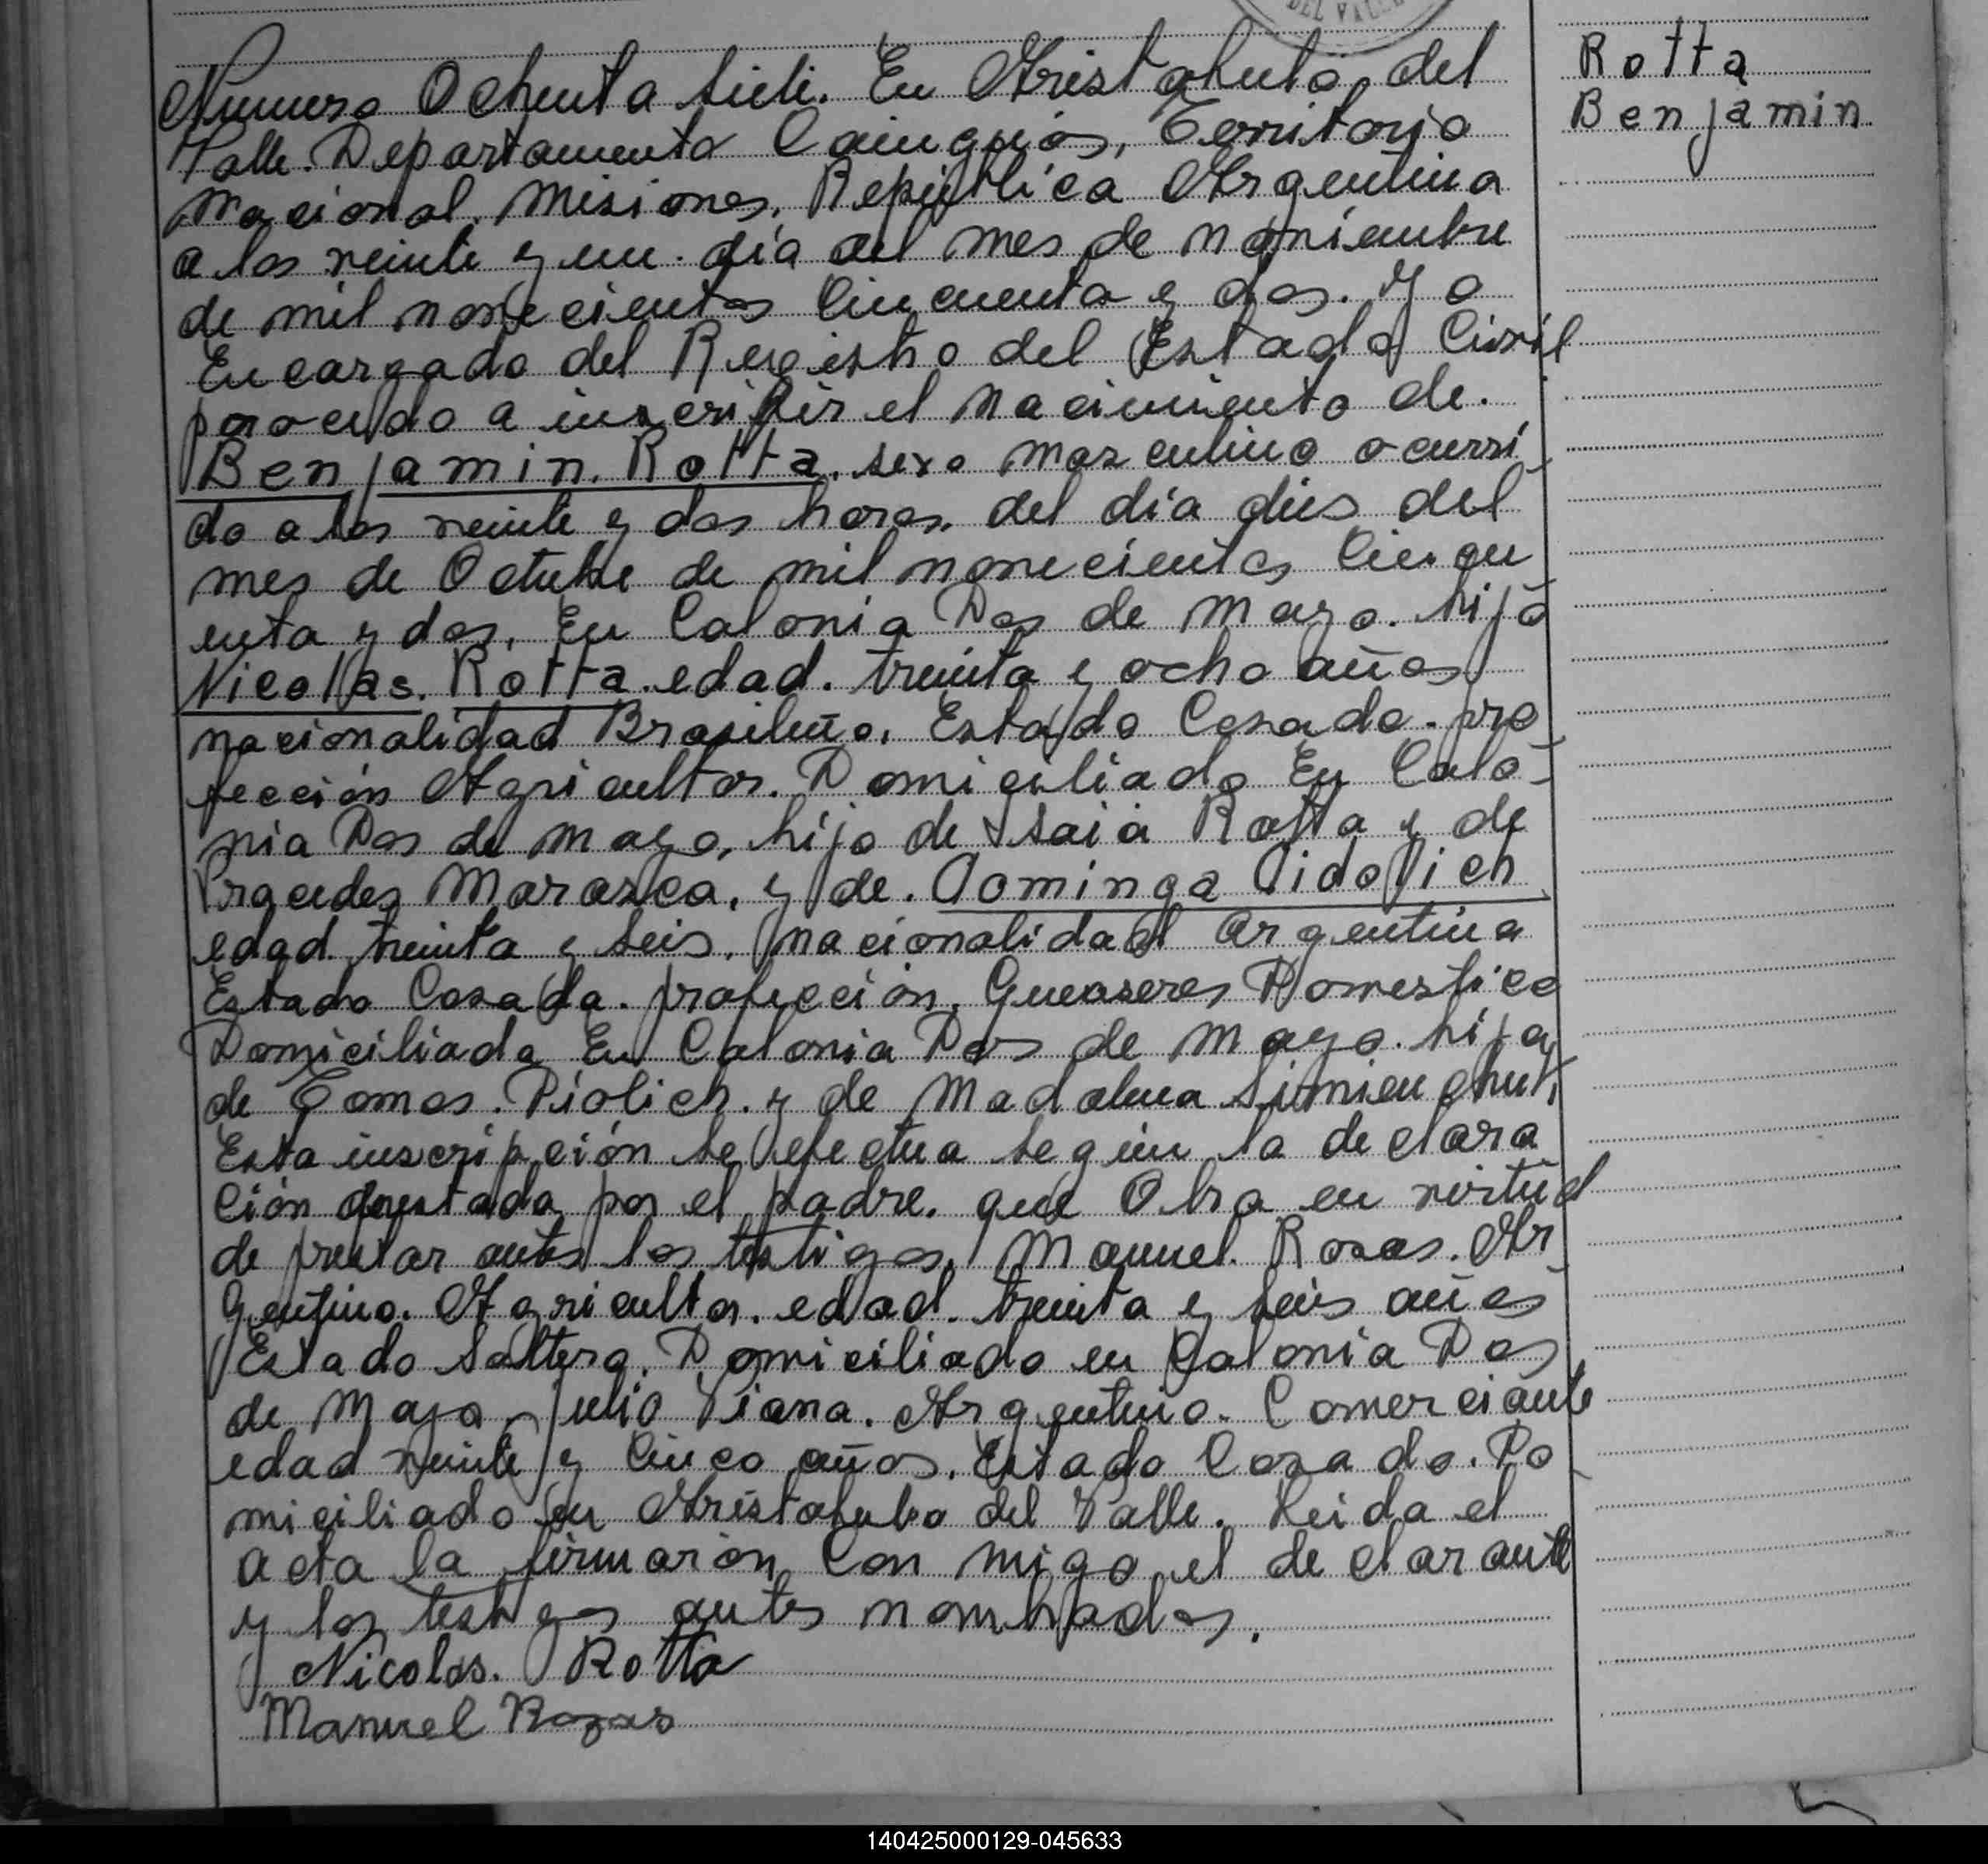 DEL VALLE
Rotta
Benjamin
Numero Ochenta siete. En Aristobulo del
Valle. Departamento Cainguás, Territorio
Nacional. Misiones. República Argentina
a los veinte y un día del mes de noviembre
de mil novecientos Cincuenta y dos. Yo
Encargado del Registro del Estado Civil
procedo a inscribir el nacimiento de.
Benjamin. Rotta. sexo masculino ocurri
do a las veinte y dos horas. del día dies del
mes de Octubre de mil novecientos Cincu
enta y dos. En Colonia Dos de Mayo. hijo
Nicolas. Rotta. edad. treinta y ocho años
nacionalidad Brasileño. Estado Casado. pro
feccion Agricultor. Domiciliado En Colo-
nia Dos de Mayo, hijo de Isaia Rotta y de
Pracedes Marasca. y de. Dominga Vidovich
edad treinta y seis. nacionalidad argentina
Estado Casada. profeccion. Queaseres Domestico
Domiciliada En Colonia Dos de Mayo. hija
de Tomas. y de Madalena
Esta inscripción se efectua según la declara
ción prestada por el padre. que Obra en virtud
de prestar antes los testigos. Manuel. Rosas. Ar
gentino. Agricultor. edad. treinta y seis años
Estado Soltero. Domiciliado en Colonia Dos
de Mayo y Julio Viana. Argentino. Comerciante
edad veinte y Cinco años. Estado Casado. Do
miciliado en Aristobulo del Valle. Leida el
acta la firmarón Con migo el declarante
y los testigos antes nombrados.
Nicolas. Rotta
Manuel Rozas
140425000129-045633